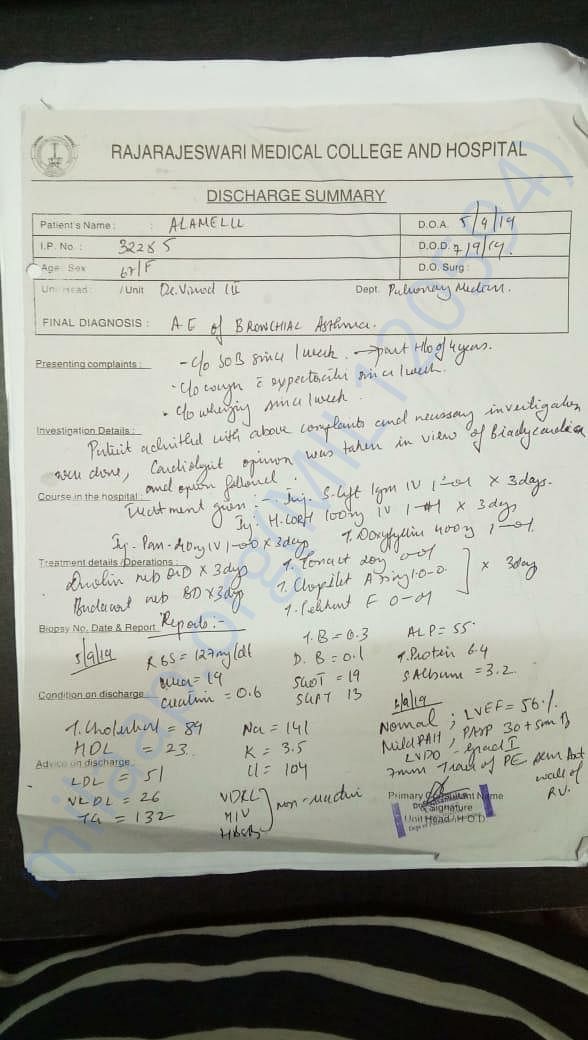 RAJARAJESWARI MEDICAL COLLEGE AND HOSPITAL
DISCHARGE SUMMARY
Patient's Name : : ALAMELU D.O.A. 5/9/19
I.P. No. : 32285 D.O.D. 7/9/19.
Age Sex 67/F D.O. Surg :
Unit Head : /Unit Dr. Vinod Dept. Pulmonary Medicin.
FINAL DIAGNOSIS : A E of BRONCHIAL ASTHMA.
Presenting complaints : - c/o SOB since 1 week. → past H/o of 4 years.
- c/o cough c expectoration since 1 week.
• c/o wheezing since 1 week.
Investigation Details : Patient admitted with above complaints and necessary investigation
were done, Cardiologist opinion was taken in view of Bradycardia
and opinion followed.
Course in the hospital : Treatment given :- Inj. 1gm IV × 3days.
Inj. H. CORT 100mg IV × 3 days
Inj. Pan 40mg IV 1-0-0 × 3 days 400mg
Treatment details /Operations : T. 20mg
Duolin neb × 3 days T. Clopilet A
Budecort neb BD × 3 days F
× 3 days
Biopsy No. Date & Report Reports :-
5/9/19 RBS = 127mg/dl T.B = 0.3 ALP = 55
urea = 19 D.B = 0.1 T. Protein 6.4
creatinin = 0.6 SGOT = 19 S Albumin = 3.2
Condition on discharge SGPT 13
T. Cholesterol = 89 Na = 141 Normal ; LVEF = 56%
HDL = 23 K = 3.5 Mild PAH, PASP 30 +
Advice on discharge LVDD - Grad I
LDL = 51 Cl = 104 7mm PE
VLDL = 26 VDRL wall of RV.
TG = 132 HIV non-reactive
HBsAg
Primary Consultant Name
Signature
Unit Head / H.O.D
milaap.org(MIL 120594)